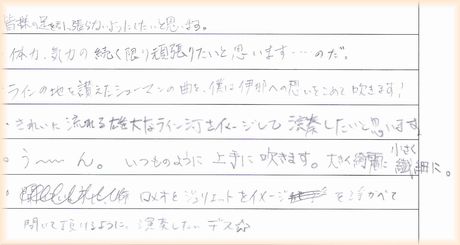 皆様の足を引っ張らないようにしたいと思います。
体力、気力の続く限り頑張りたいと思います…のだ。
ラインの地を讃えたシューマンの曲を、僕は伊那への想いをこめて吹きます!
・きれいに流れる雄大なライン河をイメージして演奏したいと思います
・う〜〜ん。いつものように上手に吹きます。大きく綺麗に小さく繊細に。
・ロメオとジュリエットをイメージを浮かべて
聞いて頂けるように、演奏したいデス☆